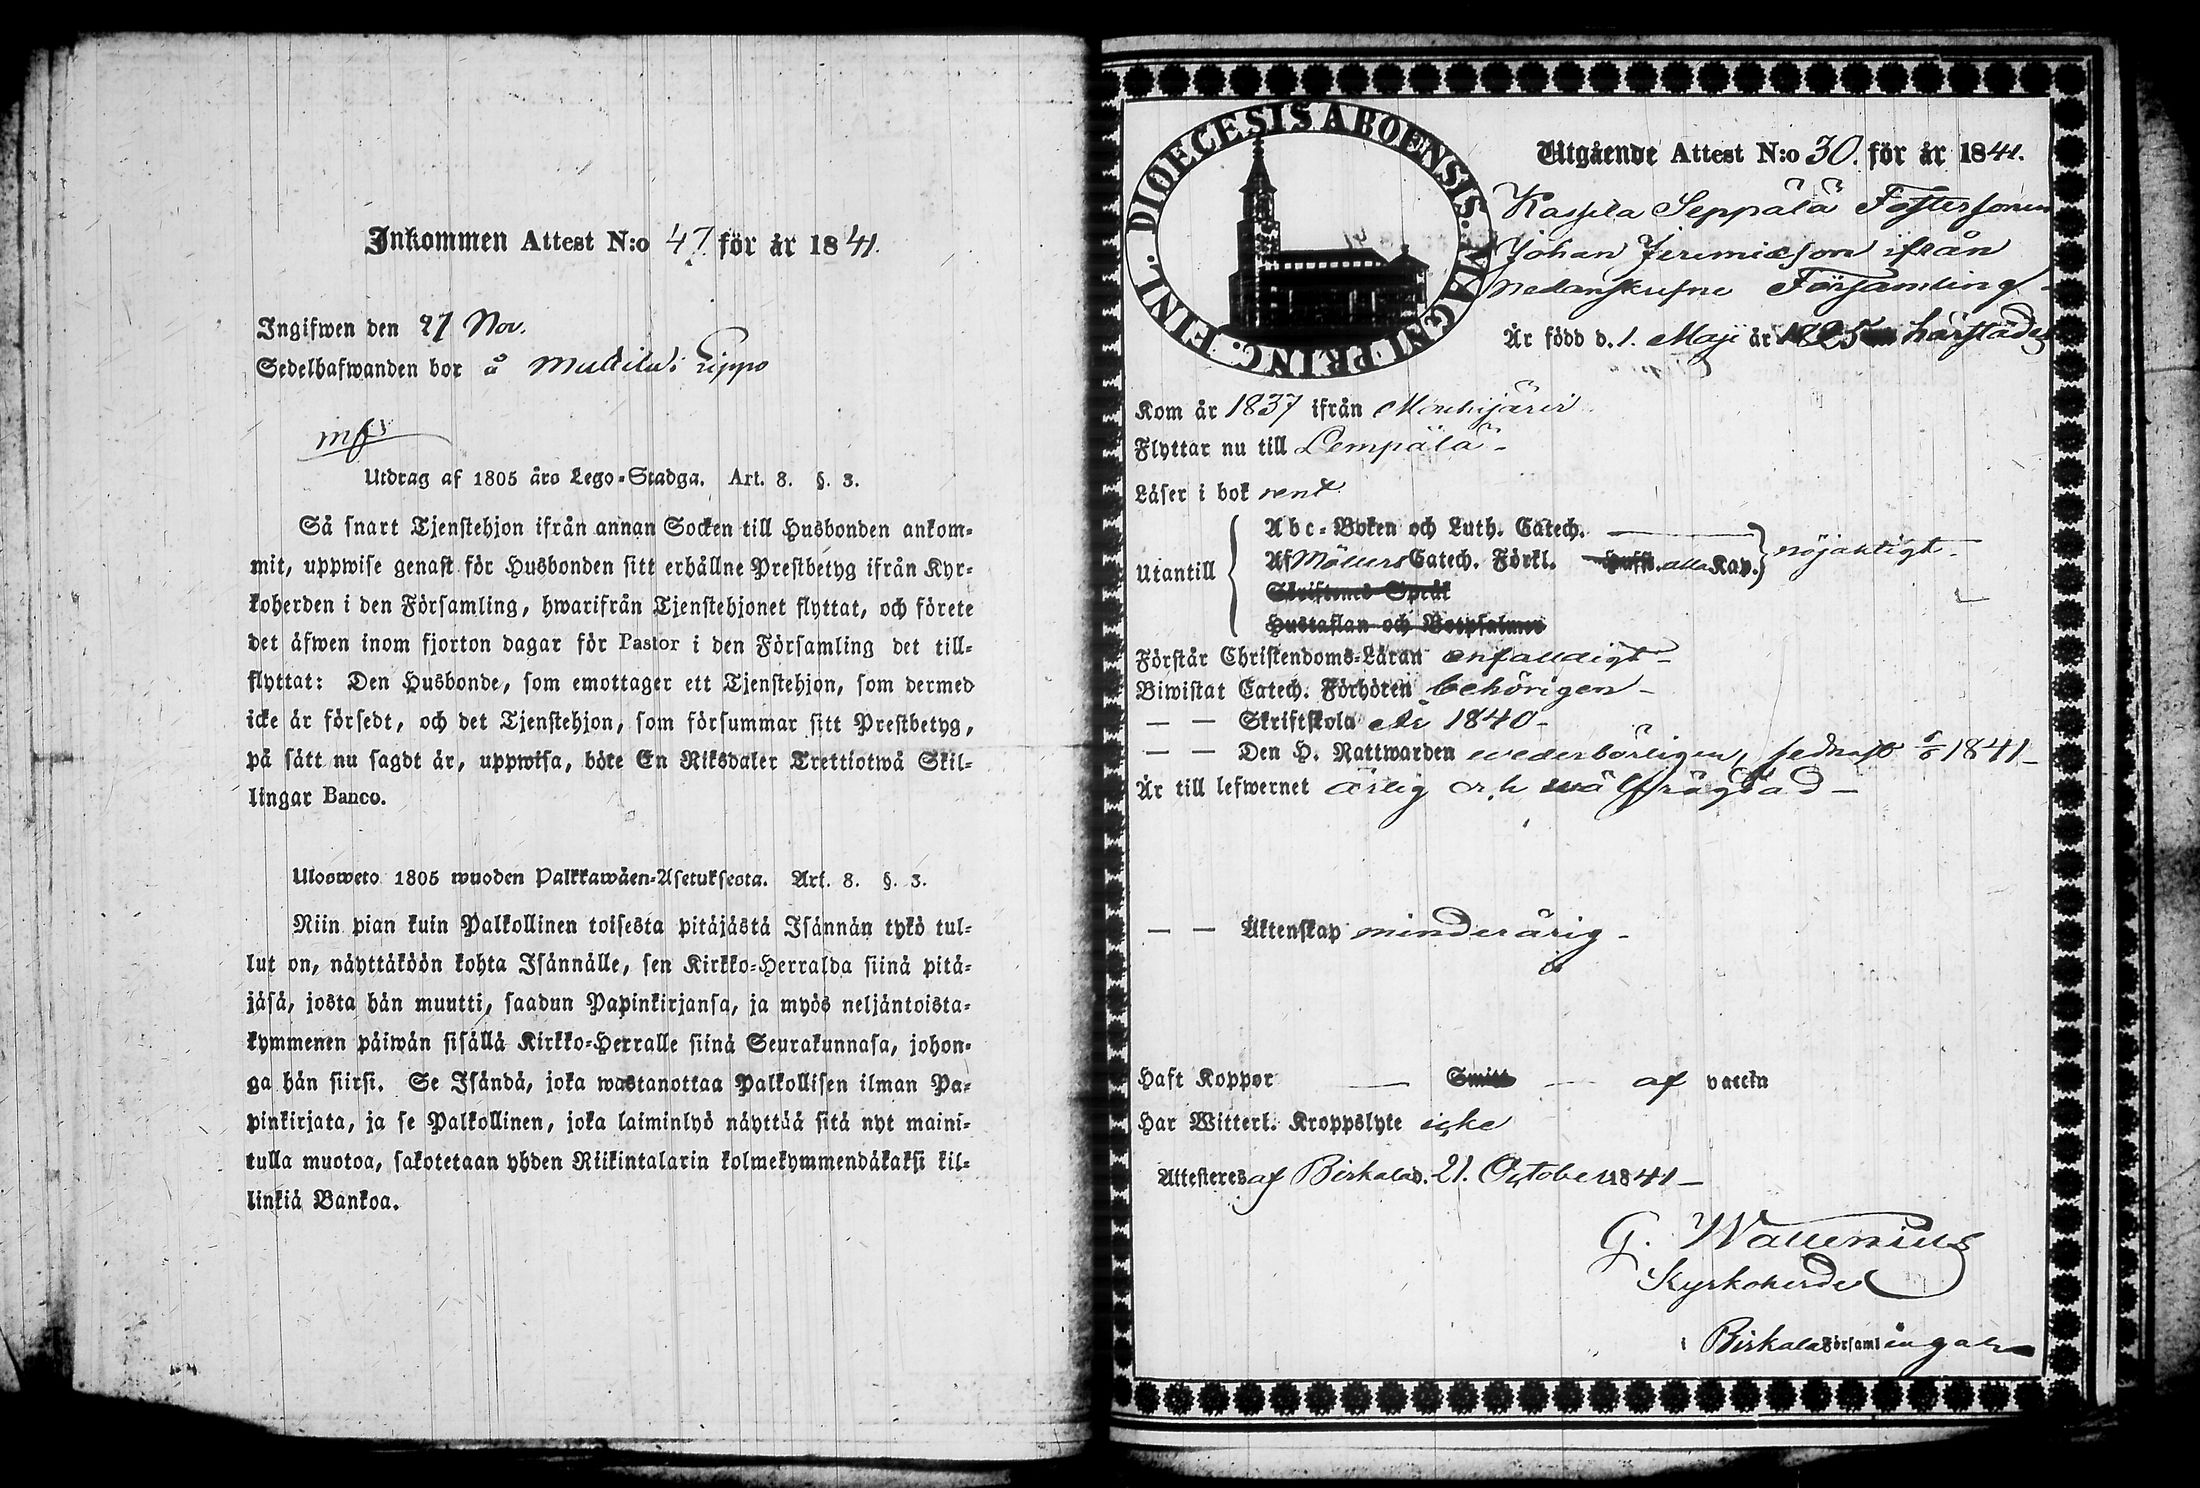 Inkommen Attest N:o 47. för år 1841.
Ingifwen den 27 Nov.
Sedelhafwanden bor å Multila: Lippo
Utdrag af 1805 års Lego-Stadga. Art. 8. §. 3.
Så snart Tjenstehjon ifrån annan Socken till Husbonden ankom-
mit, uppwise genast för Husbonden sitt erhållne Prestbetyg ifrån Kyr-
koherden i den Församling, hwarifrån Tjenstehjonet flyttat, och förete
det äfwen inom fjorton dagar för Pastor i den Församling det till-
flyttat: Den Husbonde, som emottager ett Tjenstehjon, som dermed
icke är försedt, och det Tjenstehjon, som försummar sitt Prestbetyg,
på sätt nu sagdt är, uppwisa, böte En Riksdaler Trettiotwå Skil-
lingar Banco.
Ulosweto 1805 wuoden Palkkawäen-Asetuksesta. Art. 8. §. 3.
Niin pian kuin Palkollinen toisesta pitäjästä Isännän tykö tul-
lut on, näyttäköön kohta Isännälle, sen Kirkko-Herralda siinä pitä-
jäsä, josta hän muutti, saadun Papinkirjansa, ja myös neljäntoista-
kymmenen päiwän sisällä Kirkko-Herralle siinä Seurakunnasa, johon-
ga hän siirsi. Se Isändä, joka wastanottaa Palkollisen ilman Pa-
pinkirjata, ja se Palkollinen, joka laiminlyö näyttää sitä nyt maini-
tulla muotoa, sakotetaan yhden Riikintalarin kolmekymmendäkaksi kil-
linkiä Bankoa.
DIOECESIS ABOENSIS. MAGNI PRINC. FINL.
Utgående Attest N:o 30. för år 1841.
Seppälä Fostersonen
Johan Jeremiæson ifrån
nedanskrefne Församling
Är född d. 1. Maji år 1825 härstädes
Kom år 1837 ifrån Mouhijärvi
Flyttar nu till Lempälä
Läser i bok rent
Utantill
Abc-Boken och Luth. Catech.
Af Möllers Catech. Förkl. Hufst. alla Kap. nöjaktigt
Skriftenes Språk
Hustaflan och Botpsalmer
Förstår Christendoms-Läran enfaldigt
Biwistat Catech. Förhören behörigen
— — Skriftskola År 1840
— — Den H. Nattwarden wederbörligen, sednast 1841
Är till lefwernet ärlig och wälfrägdad
— — Äktenskap minderårig
Haft Koppor — Smitt — af vaccin
Har Witterl. Kroppslyte icke
Attesteres af Birkala d. 21. October 1841
G. Wallenius
Kyrkoherde
i Birkala Församlingar